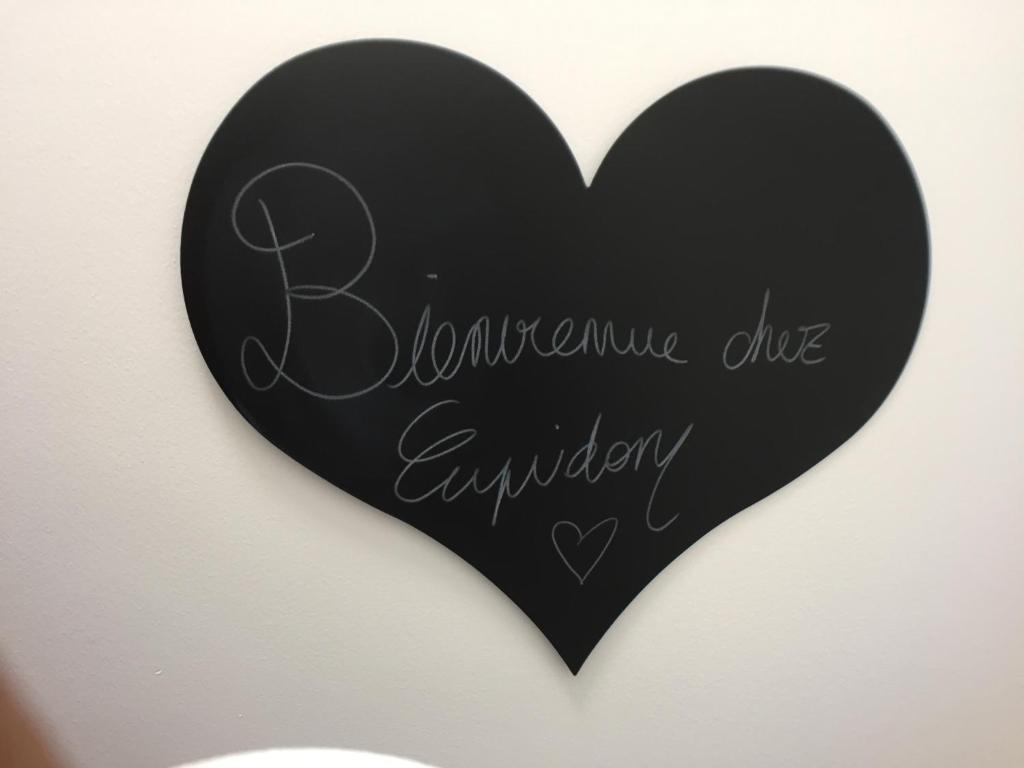 Bienvenue chez
Cupidony